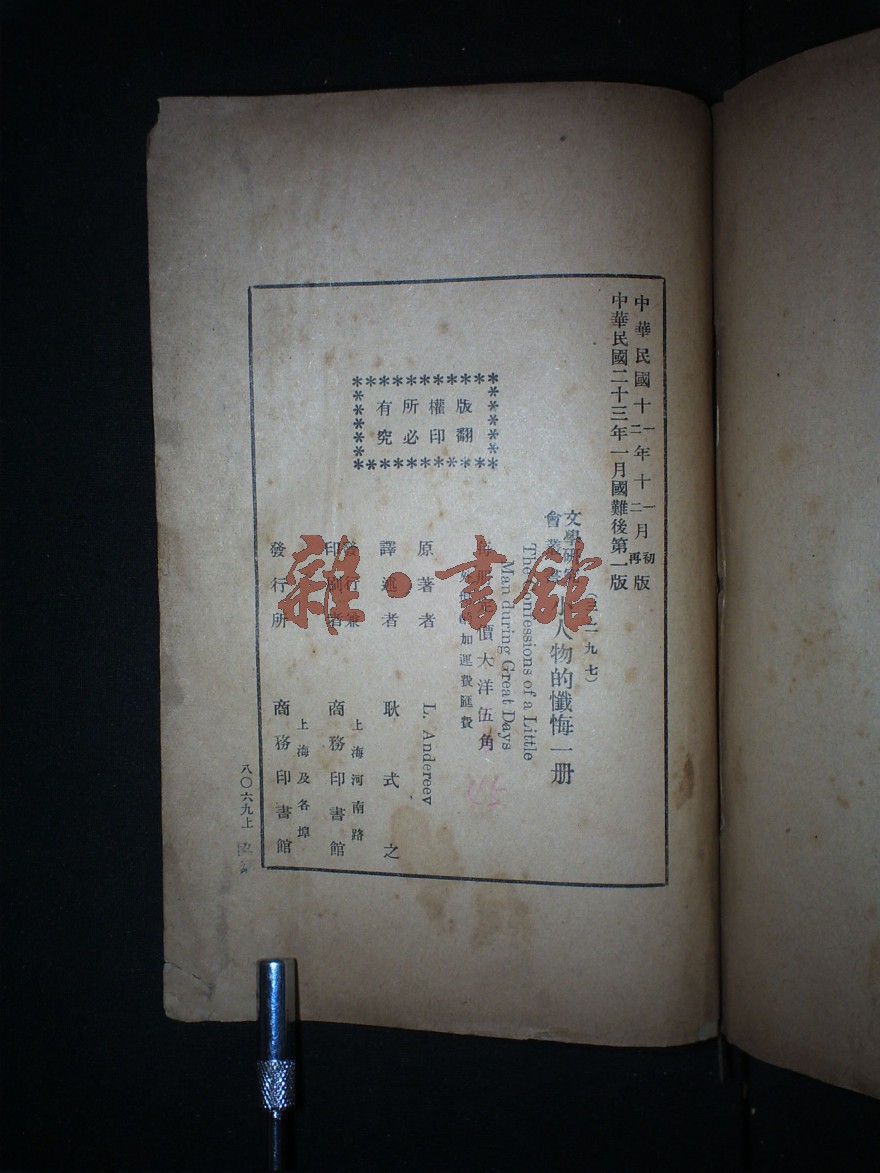 中華民國十一年十一月初版
　　　　十二　十二月再
中華民國二十三年一月國難後第一版
(三二九七)
文學研究會叢書 小人物的懺悔一册
The Confessions of a Little
Man during Great Days
定價大洋伍角
加運費匯費
原著者 L. Andereev
譯述者 耿式之
發行兼印刷者 上海河南路 商務印書館
發行所 上海及各埠 商務印書館
版權所有
翻印必究
八〇六九上
雜·書館